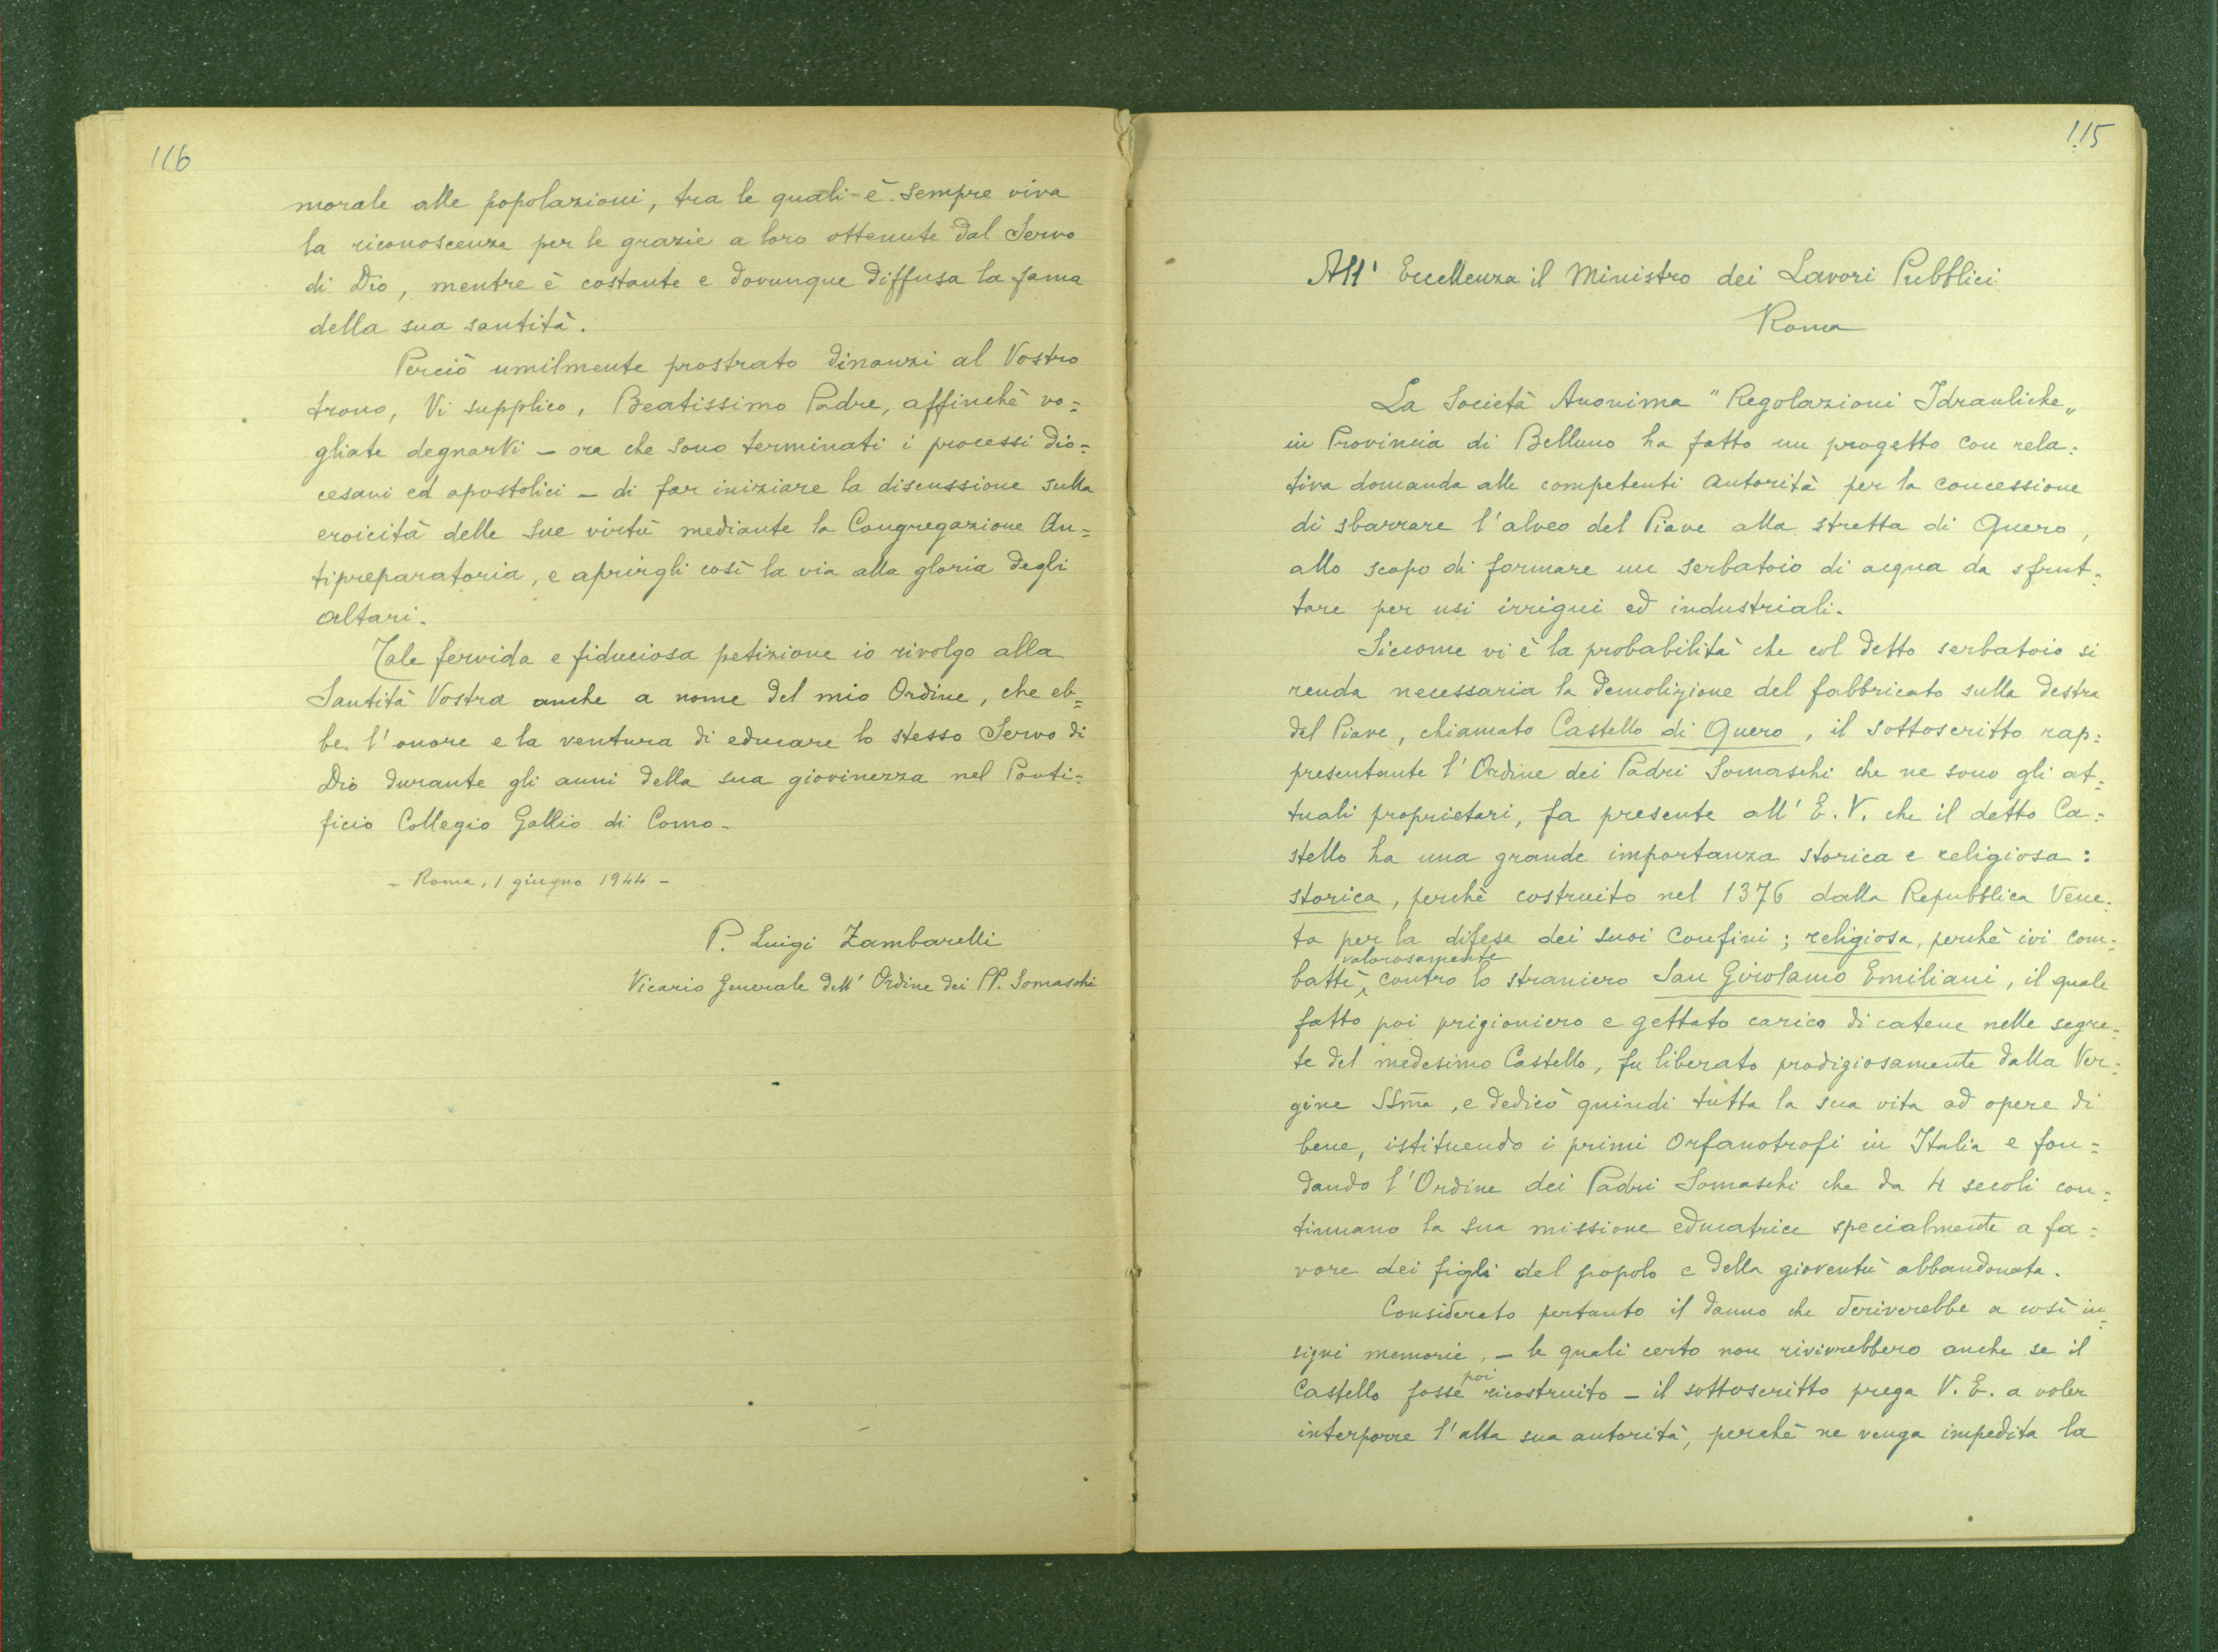 116
morale alle popolazioni, tra le quali è sempre viva
la riconoscenza per le grazie a loro ottenute dal Servo
di Dio, mentre è costante e dovunque diffusa la fama
della sua santità.
Perciò umilmente prostrato dinanzi al Vostro
trono, Vi supplico, Beatissimo Padre, affinchè vo=
gliate degnarVi – ora che sono terminati i processi dio=
cesani ed apostolici – di far iniziare la discussione sulla
eroicità delle sue virtù mediante la Congregazione An=
tipreparatoria, e aprirgli così la via alla gloria degli
altari.
Tale fervida e fiduciosa petizione io rivolgo alla
Santità Vostra anche a nome del mio Ordine, che eb=
be l'onore e la ventura di educare lo stesso Servo di
Dio durante gli anni della sua giovinezza nel Ponti=
ficio Collegio Gallio di Como.
– Roma, 1 giugno 1944 –
P. Luigi Zambarelli
Vicario Generale dell' Ordine dei PP. Somaschi
115
All' Eccellenza il Ministro dei Lavori Pubblici
Roma
La Società Anonima "Regolazioni Idrauliche„
in Provincia di Belluno ha fatto un progetto con rela=
tiva domanda alle competenti Autorità per la concessione
di sbarrare l'alveo del Piave alla stretta di Quero,
allo scopo di formare un serbatoio di acqua da sfrut=
tare per usi irrigui ed industriali.
Siccome vi è la probabilità che col detto serbatoio si
renda necessaria la demolizione del fabbricato sulla destra
del Piave, chiamato Castello di Quero, il sottoscritto rap=
presentante l'Ordine dei Padri Somaschi che ne sono gli at=
tuali proprietari, fa presente all' E. V. che il detto Ca=
stello ha una grande importanza storica e religiosa:
storica, perchè costruito nel 1376 dalla Repubblica Vene=
ta per la difesa dei suoi confini; religiosa, perchè ivi com=
battè valorosamente contro lo straniero San Girolamo Emiliani, il quale
fatto poi prigioniero e gettato carico di catene nelle segre=
te del medesimo Castello, fu liberato prodigiosamente dalla Ver=
gine SSma, e dedicò quindi tutta la sua vita ad opere di
bene, istituendo i primi Orfanotrofi in Italia e fon=
dando l'Ordine dei Padri Somaschi che da 4 secoli con=
tinuano la sua missione educatrice specialmente a fa=
vore dei figli del popolo e della gioventù abbandonata.
Considerato pertanto il danno che deriverebbe a così in=
signi memorie, – le quali certo non rivivrebbero anche se il
Castello fosse poi ricostruito – il sottoscritto prega V. E. a voler
interporre l'alta sua autorità, perchè ne venga impedita la